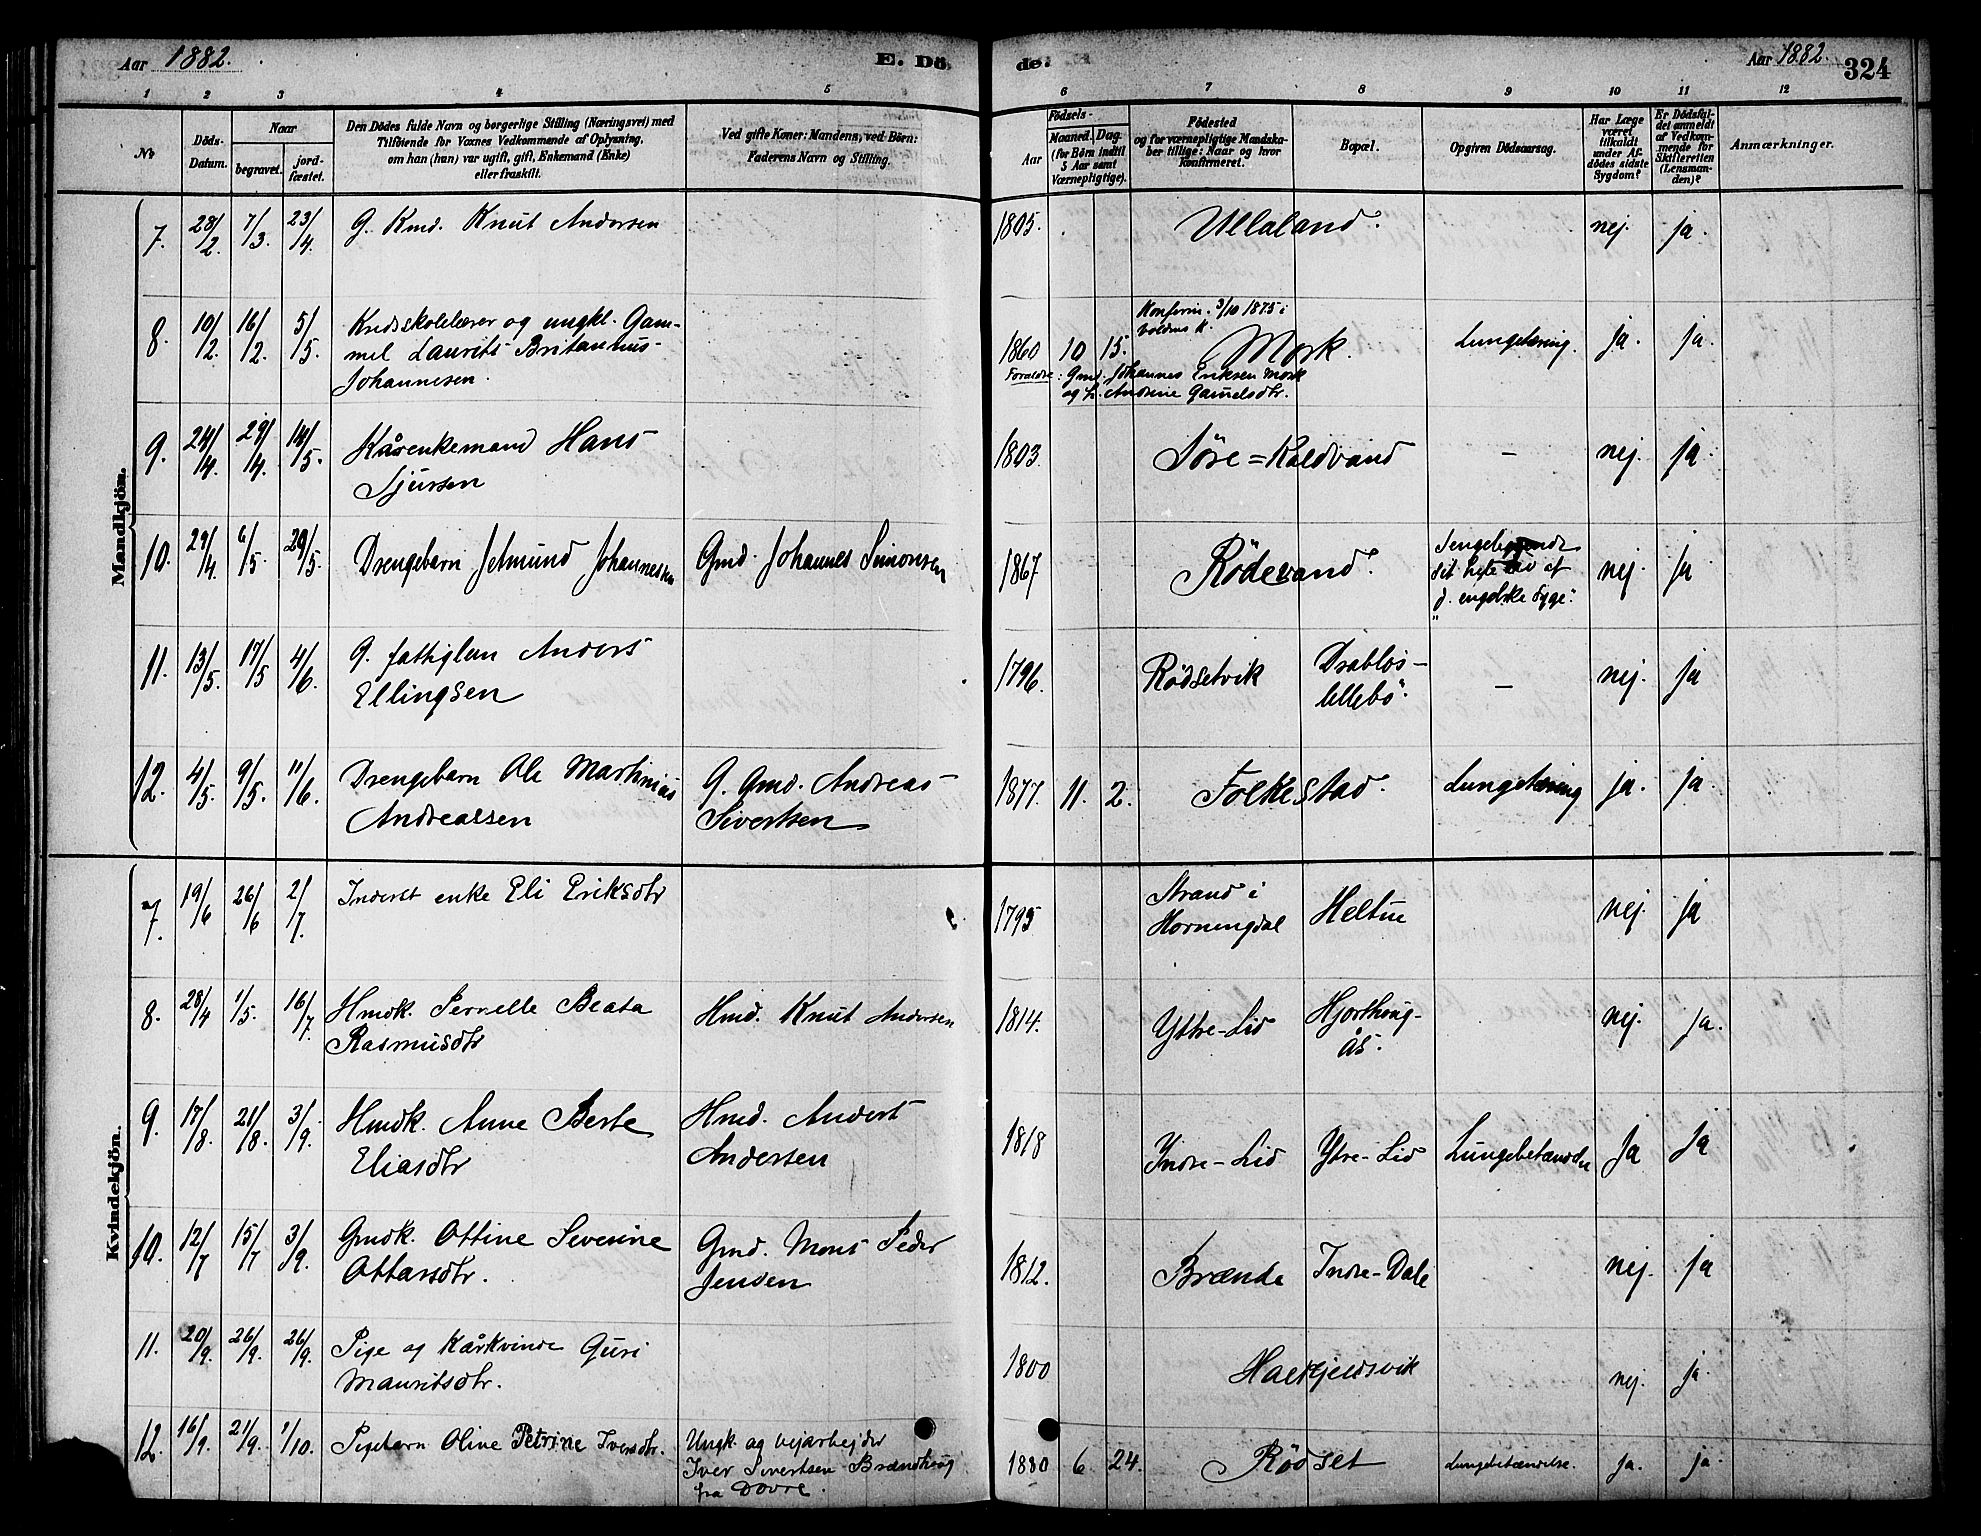 Aar 1882.
E. Dö-
de.
Aar 1882.
324
1 2 3 4 5 6 7 8 9 10 11 12
No
Döds-
Datum.
Naar
begravet.
jord-
fæstet.
Den Dödes fulde Navn og borgerlige Stilling (Næringsvei) med
Tilföiende for Voxnes Vedkommende af Oplysning,
om han (hun) var ugift, gift, Enkemand (Enke)
eller fraskilt.
Ved gifte Koner: Mandens, ved Börn:
Faderens Navn og Stilling.
Födsels-
Aar
Maaned. Dag.
(for Börn indtil
5 Aar samt
Værnepligtige).
Födested
og for værnepligtige Mandska-
ber tillige: Naar og hvor
konfirmeret.
Bopæl.
Opgiven Dödsaarsag.
Har Læge
været
tilkaldt
under Af-
dödes sidste
Sygdom?
Er Dödsfal-
det anmeldt
af Vedkom-
mende for
Skifteretten
(Lensman-
den)?
Anmærkninger.
Mandkjön.
7. 28/2 7/3. 23/4. G. Kmd. Knut Andersen 1805. Ullaland. nej. ja.
8. 10/2. 16/2. 5/5. Kredsskolelærer og ungkl. Gam-
mel Laurits Britannus
Johannesen.
Konfirm. 3/10 1875 i
Voldens K.
1860 10 15. Mork. Lungetæring. ja. ja.
Forældre: Gmd. Johannes Eriksen Mork
og h. Andrine Gamelsdtr.
9. 24/4. 29/4. 14/5. Kårenkemand Hans
Sjursen
1803. Søre=Kaldvand – nej. ja.
10. 29/4. 6/5. 29/5. Drengebarn Jetmund Johannessen Gmd. Johannes Simonsen 1867 Rödevand. Sengeliggende
sit hele Liv af
"d. engelske Syge". nej. ja
11. 13/5. 17/5 4/6. G. fattiglem Anders
Ellingsen
1796. Rødsetvik Drabløs-
lillebø. – nej. ja
12. 4/5. 9/5. 11/6. Drengebarn Ole Martinius
Andreassen
G. Gmd. Andreas
Sivertsen
1877. 11. 2. Folkestad. Lungetæring ja. ja.
Kvindekjön.
7. 19/6 26/6 2/7. Inderst enke Eli Eriksdtr 1795 Strand i
Horningdal Heltne nej. ja
8. 28/4 1/5. 16/7 Hmdk. Pernelle Beata
Rasmusdtr
Hmd. Knut Andersen 1814. Yttre-Lid Hjorthaug-
ås. nej. ja.
9. 17/8. 21/8. 3/9. Hmdk. Anne Berte
Eliasdtr
Hmd. Anders
Andersen
1818 Indre-Lid Ytre-Lid Lungebetændelse Ja Ja
10. 12/7 15/7 3/9. Gmdk. Ottine Severine
Ottarsdtr.
Gmd. Mons Peder
Jensen
1812. Brænde Indre-Dale nej. ja
11. 20/9. 26/9. 26/9. Pige og Kårkvinde Guri
Mauritsdtr.
1800 nej. ja.
12. 16/9. 21/9. 1/10. Pigebarn Oline Petrine Iversdtr. Ungk. og vejarbejder
Iver Sivertsen Brændhaug
fra Dovre.
1880 6 24. Rödset Lungebetændelse. ja. ja.